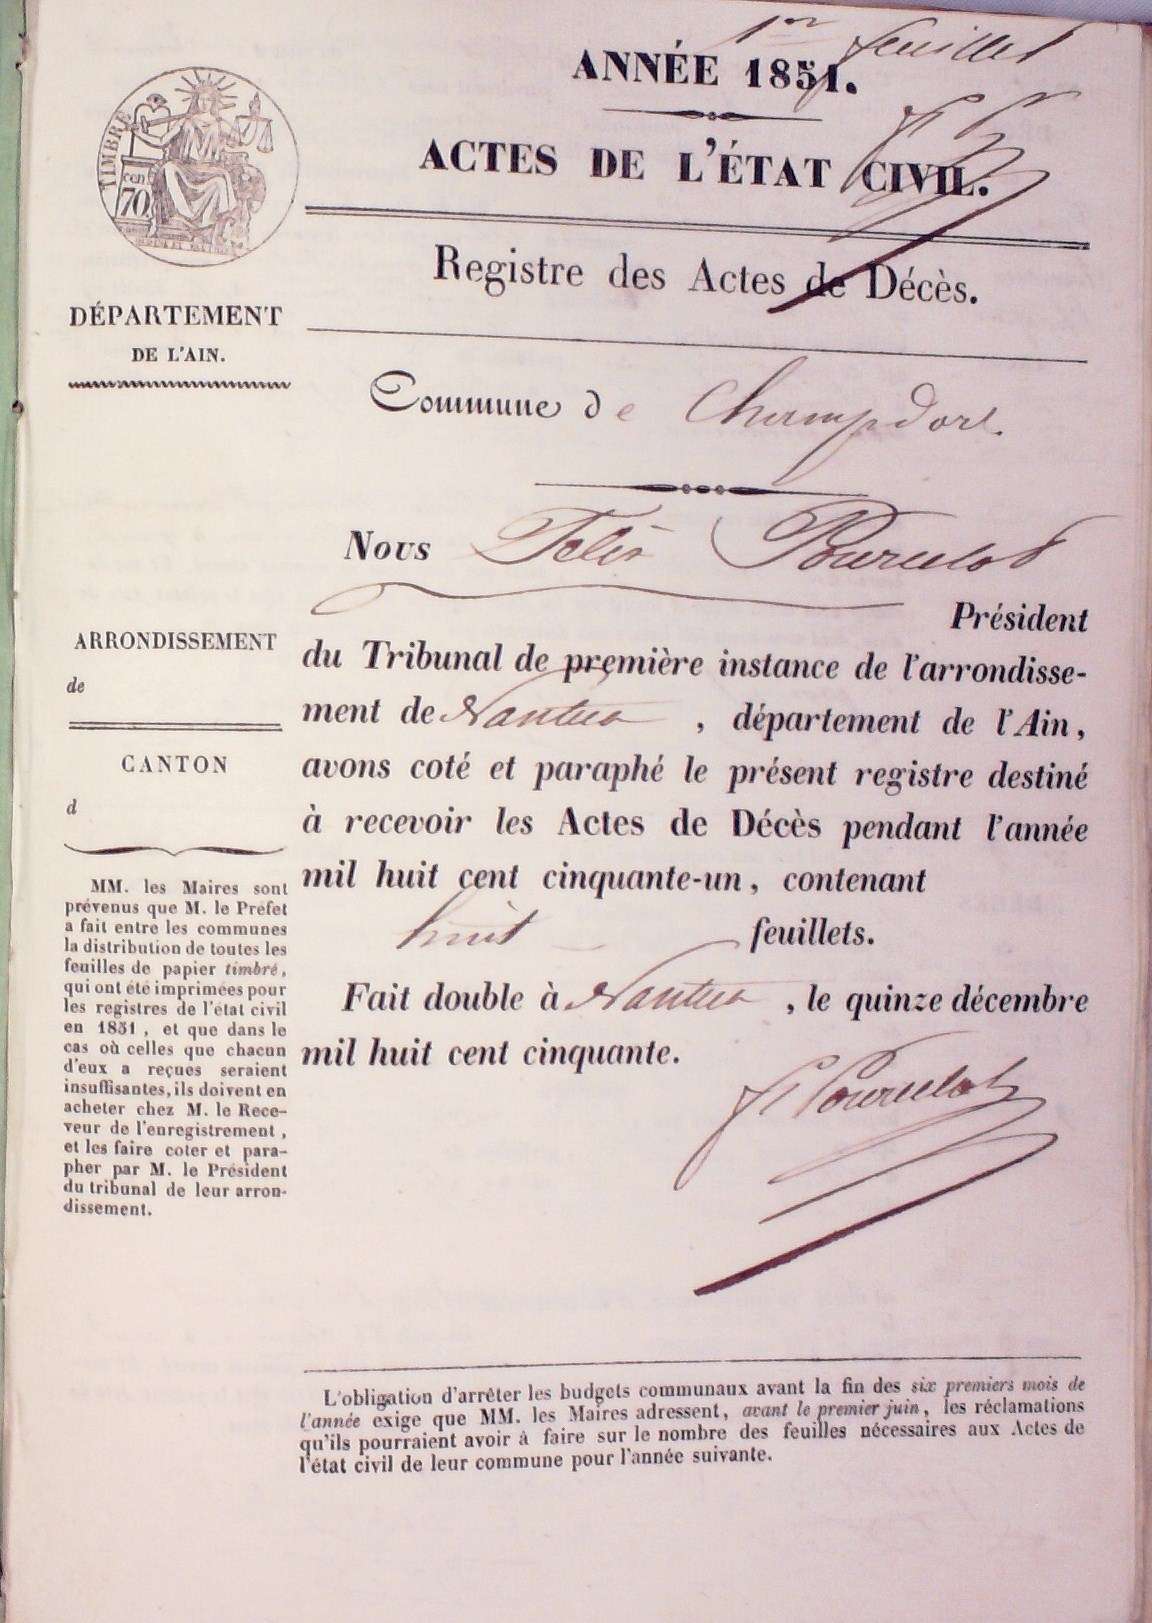 1er feuillet
ANNÉE 1851.
ACTES DE L'ÉTAT CIVIL.
Registre des Actes de Décès.
TIMBRE
70
DÉPARTEMENT
DE L'AIN.
Commune de Champdor.
Nous Félix Pourcelot
Président
du Tribunal de première instance de l'arrondisse-
ment de Nantua, département de l'Ain,
avons coté et paraphé le présent registre destiné
à recevoir les Actes de Décès pendant l'année
mil huit cent cinquante-un, contenant
huit feuillets.
Fait double à Nantua, le quinze décembre
mil huit cent cinquante.
F Pourcelot
ARRONDISSEMENT
de
CANTON
d
MM. les Maires sont
prévenus que M. le Préfet
a fait entre les communes
la distribution de toutes les
feuilles de papier timbré,
qui ont été imprimées pour
les registres de l'état civil
en 1851, et que dans le
cas où celles que chacun
d'eux a reçues seraient
insuffisantes, ils doivent en
acheter chez M. le Rece-
veur de l'enregistrement,
et les faire coter et para-
pher par M. le Président
du tribunal de leur arron-
dissement.
L'obligation d'arrêter les budgets communaux avant la fin des six premiers mois de
l'année exige que MM. les Maires adressent, avant le premier juin, les réclamations
qu'ils pourraient avoir à faire sur le nombre des feuilles nécessaires aux Actes de
l'état civil de leur commune pour l'année suivante.